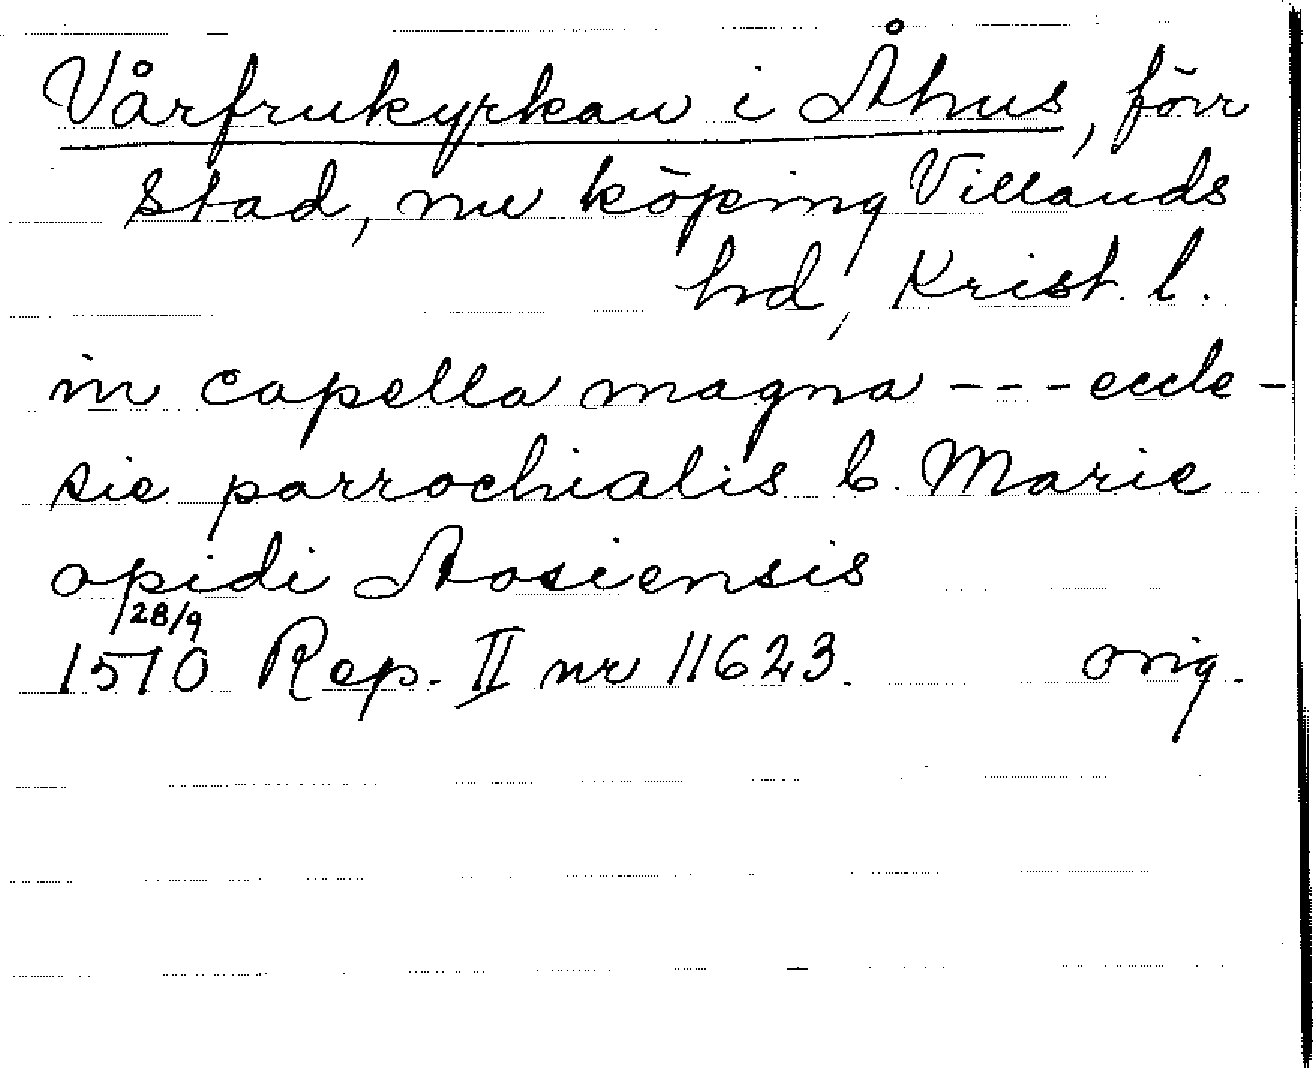 Vårfrukyrkan i Åhus, förr
stad, nu köping Villands
hd, Krist. l.
in capella magna --- eccle-
sie parrochialis b. Marie
opidi Aosiensis
28/9
1510 Rep. II nr 11623. orig.